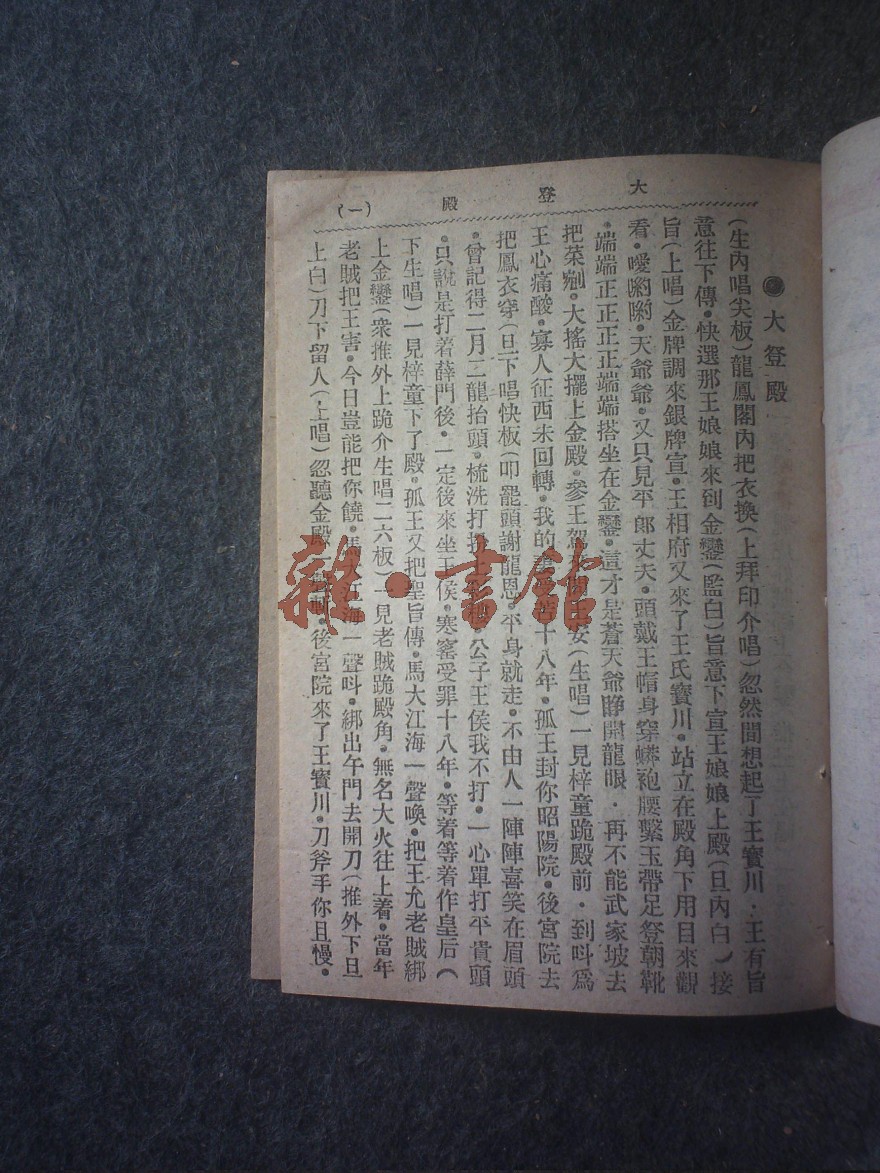 大登殿 (一)
●大登殿
(生內唱尖板)龍鳳閣內把衣換(上拜印介唱)忽然間想起了王寶川·王有旨
意往下傳·快選那王娘娘來到金鑾(監白)旨意下宣王娘娘上殿(旦內白)接
旨(上唱)金牌調來銀牌宣·王相府又來了王氏寶川·站立在殿角下用目來觀
看·噯喲喲·天爺爺·又只見平郎丈夫·頭戴王帽身穿蟒袍腰繫玉帶足登朝靴
·端端正正正正端端搭坐在金鑾·這才是蒼天爺睜開龍眼·再不能武家坡去
把菜剜·大搖大擺上金殿·參王駕安(生唱)一見梓童跪殿前·到呌爲
王心痛酸·寡人征西未回轉·我的十八年·孤王封你昭陽院·後宮院去
把鳳衣穿(旦下唱快板)叩罷頭謝龍恩·平身就走·不由人一陣陣喜笑在眉頭
·曾記得二月二龍抬頭·梳洗打扮·公子王侯我不打·一心單打平貴頭
·只說是打着薛門後·一定後來坐王侯·寒窰受罪十八年·等着等着作皇后(
下生唱)一見梓童下了殿·孤王又把聖旨傳·馬大江海一聲喚·把王允老賊綁
上金鑾(衆推外上跪介生唱二六板)一見老賊跪殿角·無名大火往上着·當年
老賊把王害·今日豈能把你饒·馬大江海一聲呌·綁出午門去開刀(推外下旦
上白)刀下留人(上唱)忽聽金殿一聲·後宮院來了王寶川·刀斧手你且慢·
雜·書館